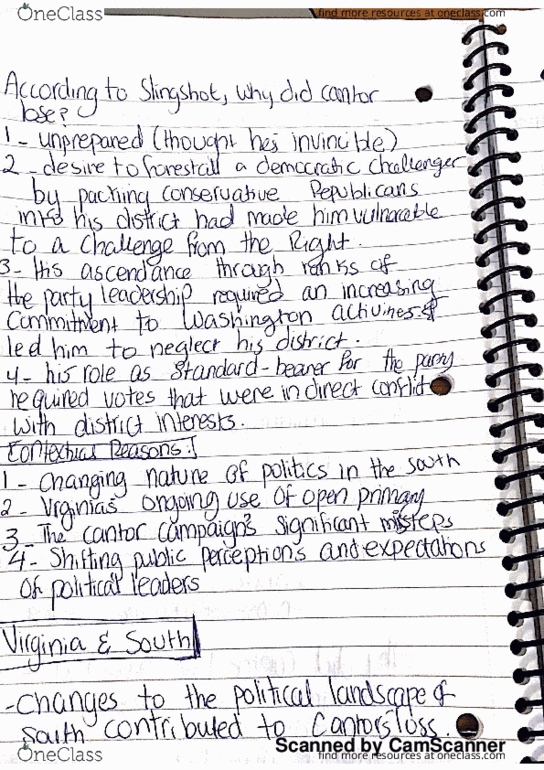 OneClass
find more resources at oneclass.com
According to Slingshot, why did cantor
lose?
1 - unprepared (thought he's invincible)
2 - desire to forestall a democratic challenger
by packing conservative Republicans
into his district had made him vulnerable
to a challenge from the Right.
3 - His ascendance through ranks of
the party leadership required an increasing
commitment to Washington activities &
led him to neglect his district.
4 - his role as standard-bearer for the party
required votes that were in direct conflict
with district interests.
Contextual Reasons:
1 - Changing nature of politics in the south
2 - Virginia's ongoing use of open primary
3 - The cantor campaign's significant missteps
4 - Shifting public perceptions and expectations
of political leaders
Virginia & South
- changes to the political landscape of
south contributed to Cantor's loss.
Scanned by CamScanner
OneClass
find more resources at oneclass.com